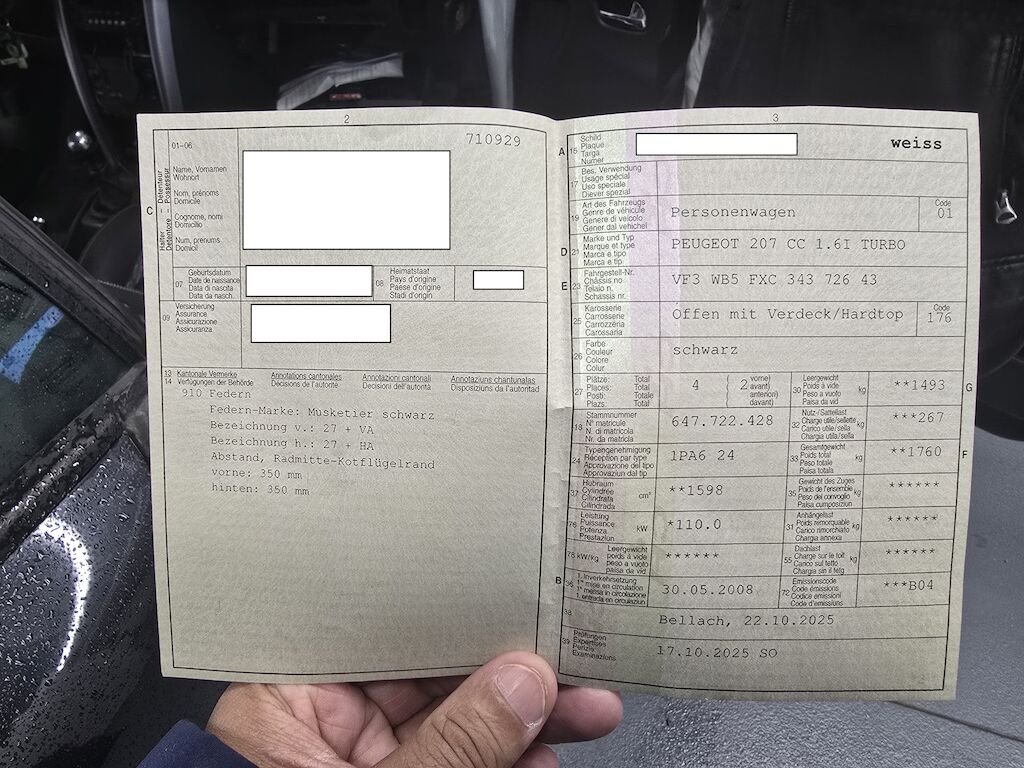 2
01–06
710929
Name, Vornamen
Wohnort
Nom, prénoms
Domicile
Cognome, nomi
Domicilio
Num, prenums
Domicil
C
Halter Détenteur
Detentore Possessur
07
Geburtsdatum
Date de naissance
Data di nascita
Data da nasch.
08
Heimatstaat
Pays d'origine
Paese d'origine
Stadi d'origin
09
Versicherung
Assurance
Assicurazione
Assicuranza
13
14
Kantonale Vermerke Annotations cantonales Annotazioni cantonali Annotaziuns chantunalas
Verfügungen der Behörde Décisions de l'autorité Decisioni dell'autorità Disposiziuns da l'autoritad
910 Federn
Federn-Marke: Musketier schwarz
Bezeichnung v.: 27 + VA
Bezeichnung h.: 27 + HA
Abstand, Radmitte-Kotflügelrand
vorne: 350 mm
hinten: 350 mm
3
A 15
Schild
Plaque
Targa
Numer
weiss
17
Bes. Verwendung
Usage spécial
Uso speciale
Diever spezial
19
Art des Fahrzeugs
Genre de véhicule
Genere di veicolo
Gener dal vehichel
Personenwagen
Code
01
D 21
Marke und Typ
Marque et type
Marca e tipo
Marca e tip
PEUGEOT 207 CC 1.6I TURBO
E 23
Fahrgestell-Nr.
Châssis no
Telaio n.
Schassis nr.
VF3 WB5 FXC 343 726 43
25
Karosserie
Carrosserie
Carrozzeria
Carossaria
Offen mit Verdeck/Hardtop
Code
176
26
Farbe
Couleur
Colore
Colur
schwarz
27
Plätze: Total
Places: Total
Posti: Totale
Plazs: Total
4
( 2 vorne)
avant)
anteriori)
davant)
30
Leergewicht
Poids à vide
Peso a vuoto
Paisa da vid
kg
**1493
G
18
Stammnummer
N° matricule
N. di matricola
Nr. da matricla
647.722.428
32
Nutz-/Sattellast
Charge utile/sellette
Carico utile/sella
Chargia utila/sella
kg
***267
24
Typengenehmigung
Réception par type
Approvazione del tipo
Approvaziun dal tip
1PA6 24
33
Gesamtgewicht
Poids total
Peso totale
Paisa totala
kg
**1760
F
37
Hubraum
Cylindrée
Cilindrata
Cilindrada
cm³
**1598
35
Gewicht des Zuges
Poids de l'ensemble
Peso del convoglio
Paisa cumposiziun
kg
******
76
Leistung
Puissance
Potenza
Prestaziun
kW
*110.0
31
Anhängelast
Poids remorquable
Carico rimorchiato
Chargia annexa
kg
******
78 kW/kg
Leergewicht
poids à vide
peso a vuoto
paisa da vid
******
55
Dachlast
Charge sur le toit
Carico sul tetto
Chargia sin il tetg
kg
******
B 36
1. Inverkehrsetzung
1re mise en circulation
1a messa in circolazione
1. entrada en circulaziun
30.05.2008
72
Emissionscode
Code émissions
Codice emissioni
Code d'emissiuns
***B04
38
Bellach, 22.10.2025
39
Prüfungen
Expertises
Perizie
Examinaziuns
17.10.2025 SO